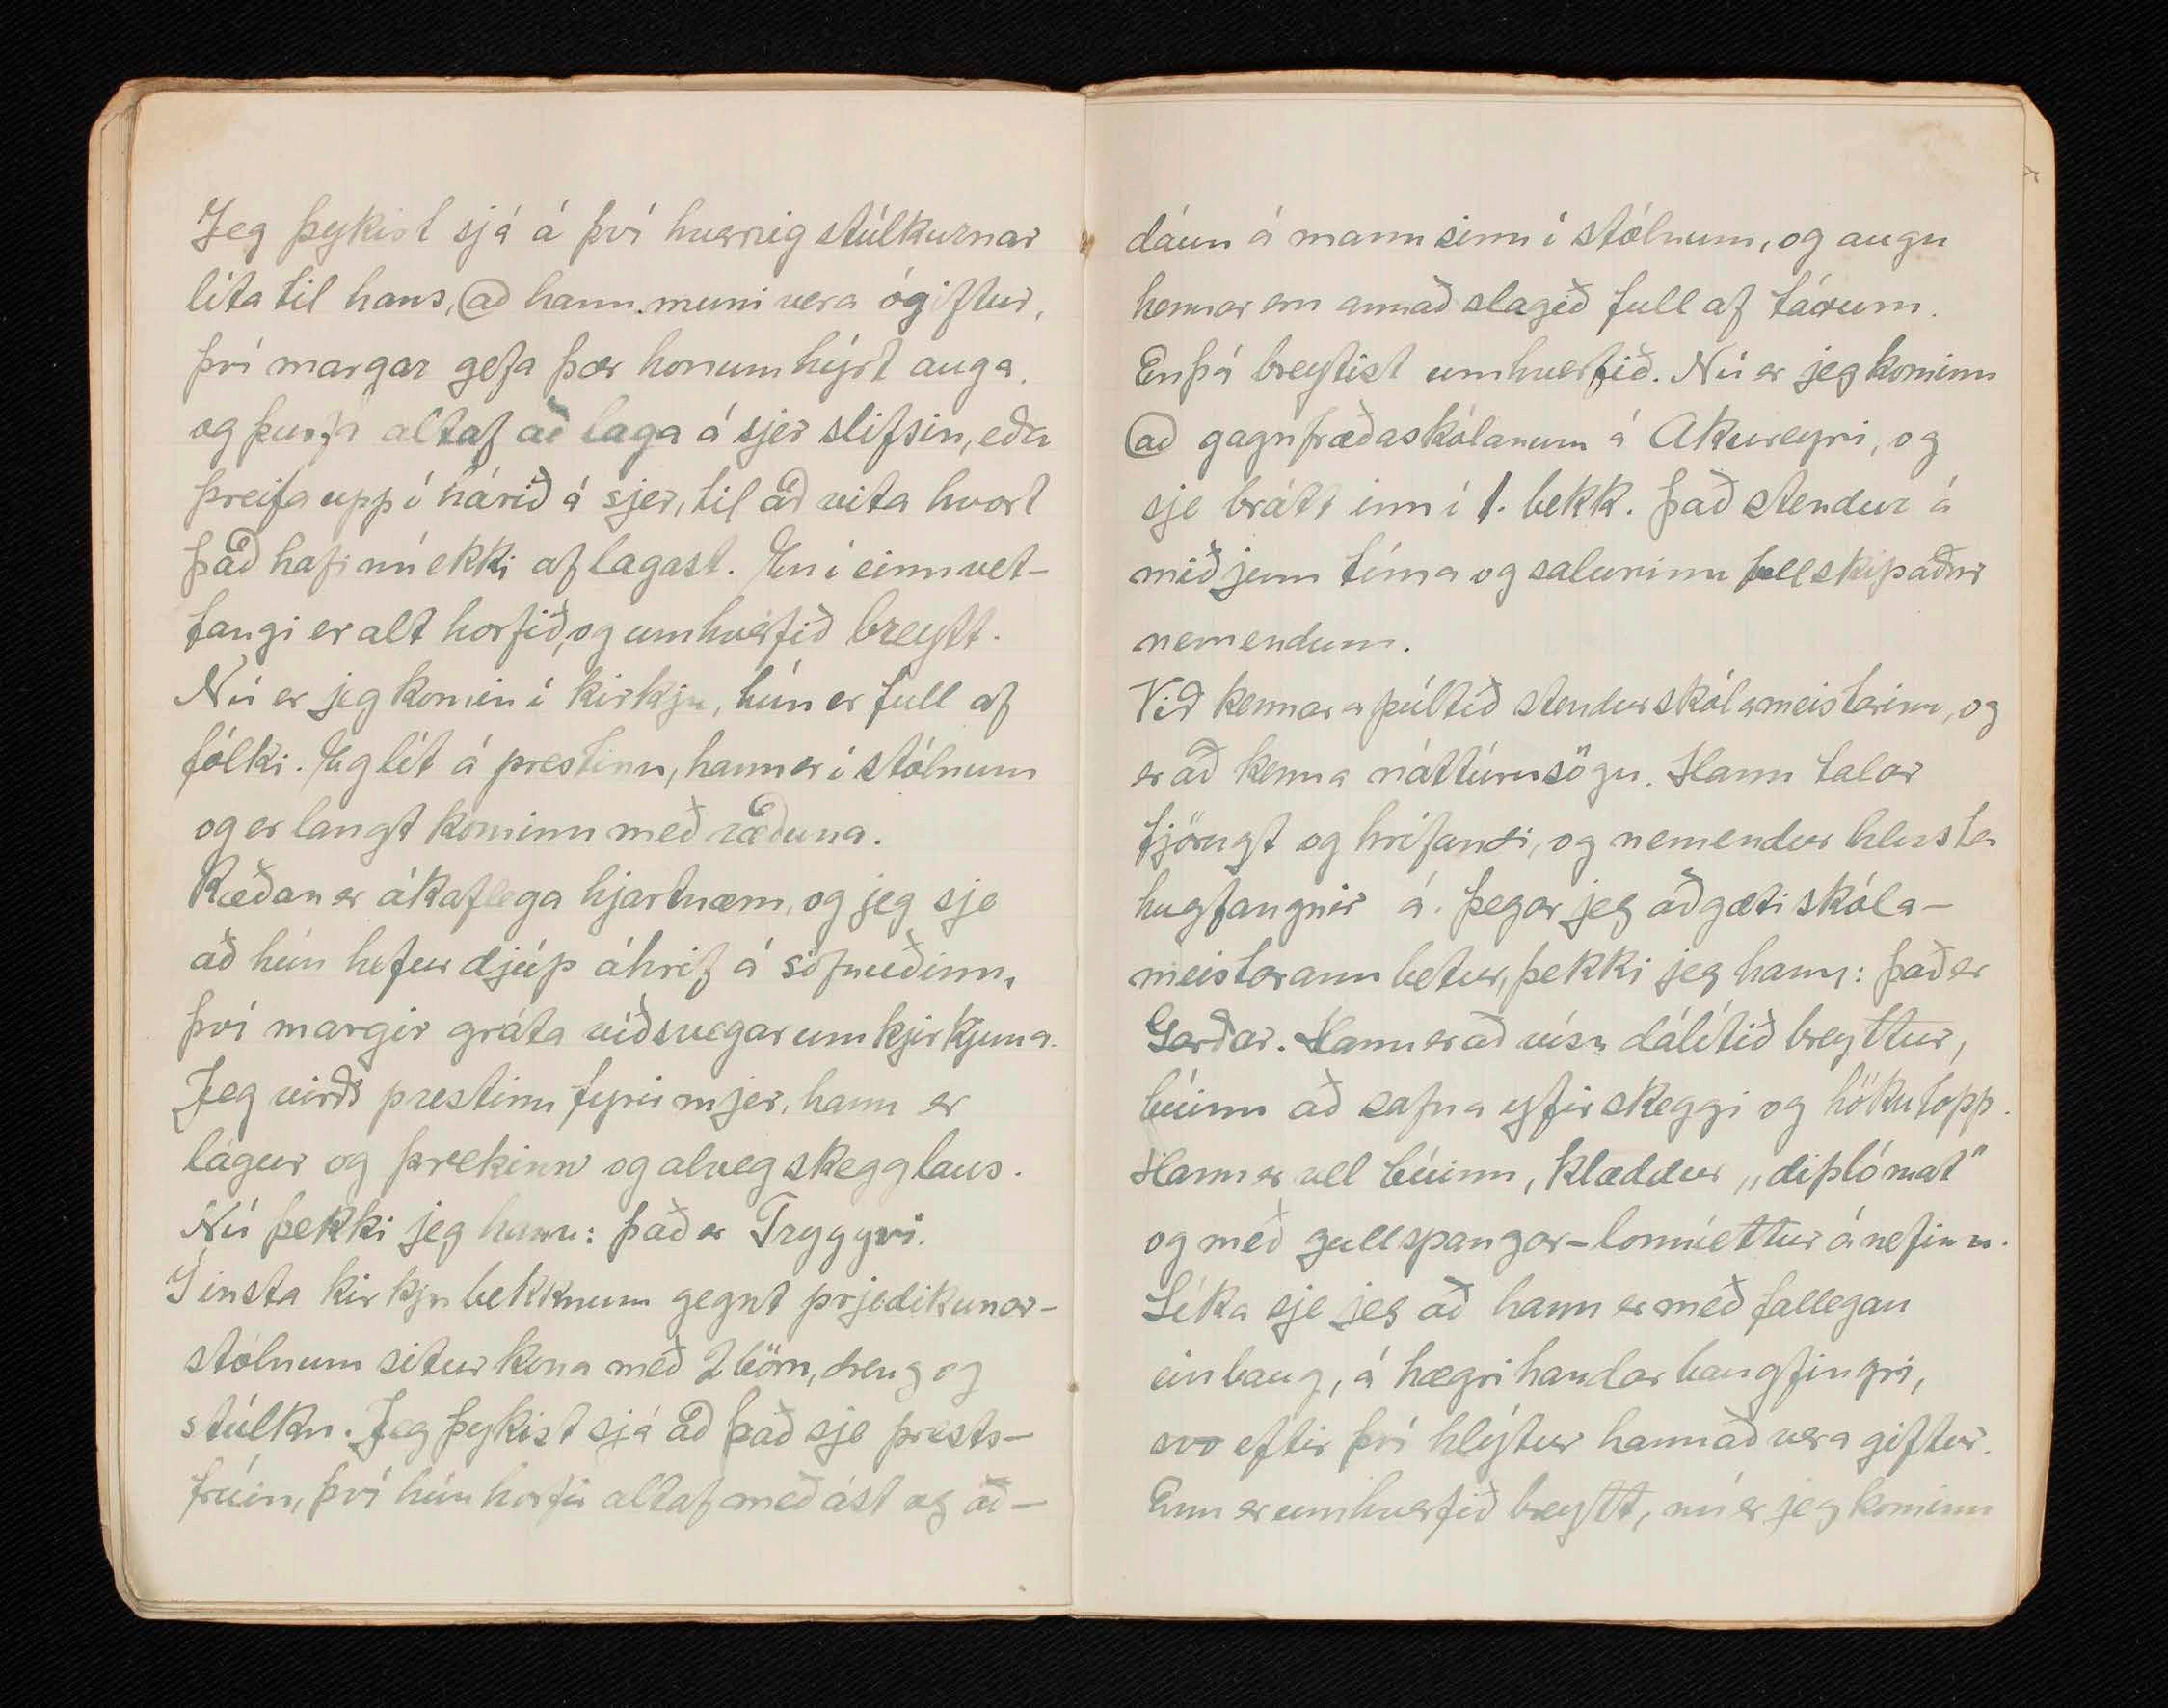 Jeg þykist sjá á því hvernig stúlkurnar
líta til hans, að hann muni vera ógiftur,
því margar gefa þær honum hýrt auga.
og þurfa altaf að laga á sjer slifsin, eða
þreifa upp í hárið á sjer, til að vita hvort
það hafi nú ekki aflagast. En í einu vet-
fangi er alt horfið, og umhverfið breytt.
Nú er jeg komin í kirkju, hún er full af
fólki. Eg lít á prestinn, hann er í stólnum
og er langt kominn með ræðuna.
Ræðan er ákaflega hjartnæm, og jeg sje
að hún hefur djúp áhrif á söfnuðinn,
því margir gráta víðsvegar um kjirkjuna.
Jeg virði prestinn fyrir mjer, hann er
lágur og þrekinn og alveg skegglaus.
Nú þekki jeg hann: það er Tryggvi.
Í insta kirkjubekknum gegnt prjedikunar-
stólnum situr kona með 2 börn, dreng og
stúlku. Jeg þykist sjá að það sje prests-
frúin, því hún horfir altaf með ást og að-
dáun á mann sinn í stólnum, og augu
hennar eru annað slagið full af tárum.
Enþá breytist umhverfið. Nú er jeg kominn
að gagnfræðaskólanum á Akureyri, og
sje brátt inn í 1. bekk. Það stendur á
miðjum tíma og salurinn fullskipaður
nemendum.
Við kennarapúltið stendur skólameistarinn, og
er að kenna náttúrusögu. Hann talar
fjörugt og hrífandi, og nemendur hlusta
hugfangnir á. Þegar jeg aðgæti skóla-
meistarann betur, þekki jeg hann: það er
Garðar. Hann er að vísu dálítið breyttur,
búinn að safna yfirskeggi og hökutopp.
Hann er vel búinn, klæddur „diplómat"
og með gullspangar-lonníettur á nefinu.
Líka sje jeg að hann er með fallegan
einbaug, á hægri handar baugfingri,
svo eftir því hlýtur hann að vera giftur.
Enn er umhverfið breytt, nú er jeg kominn